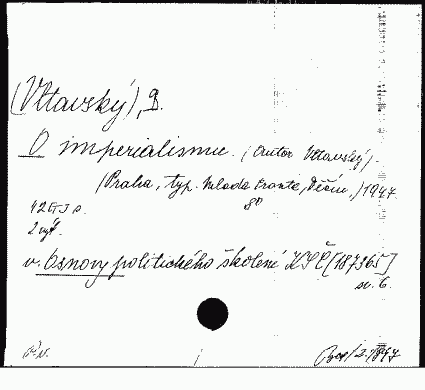 (Vltavský), B.
O imperialismu. (Autor Vltavský).
(Praha, typ. Mladá fronta, Děčín,) 1947.
8°
42 [1] s.
2 výt.
v. Osnovy politického školení KSČ [187365]
sv. 6.